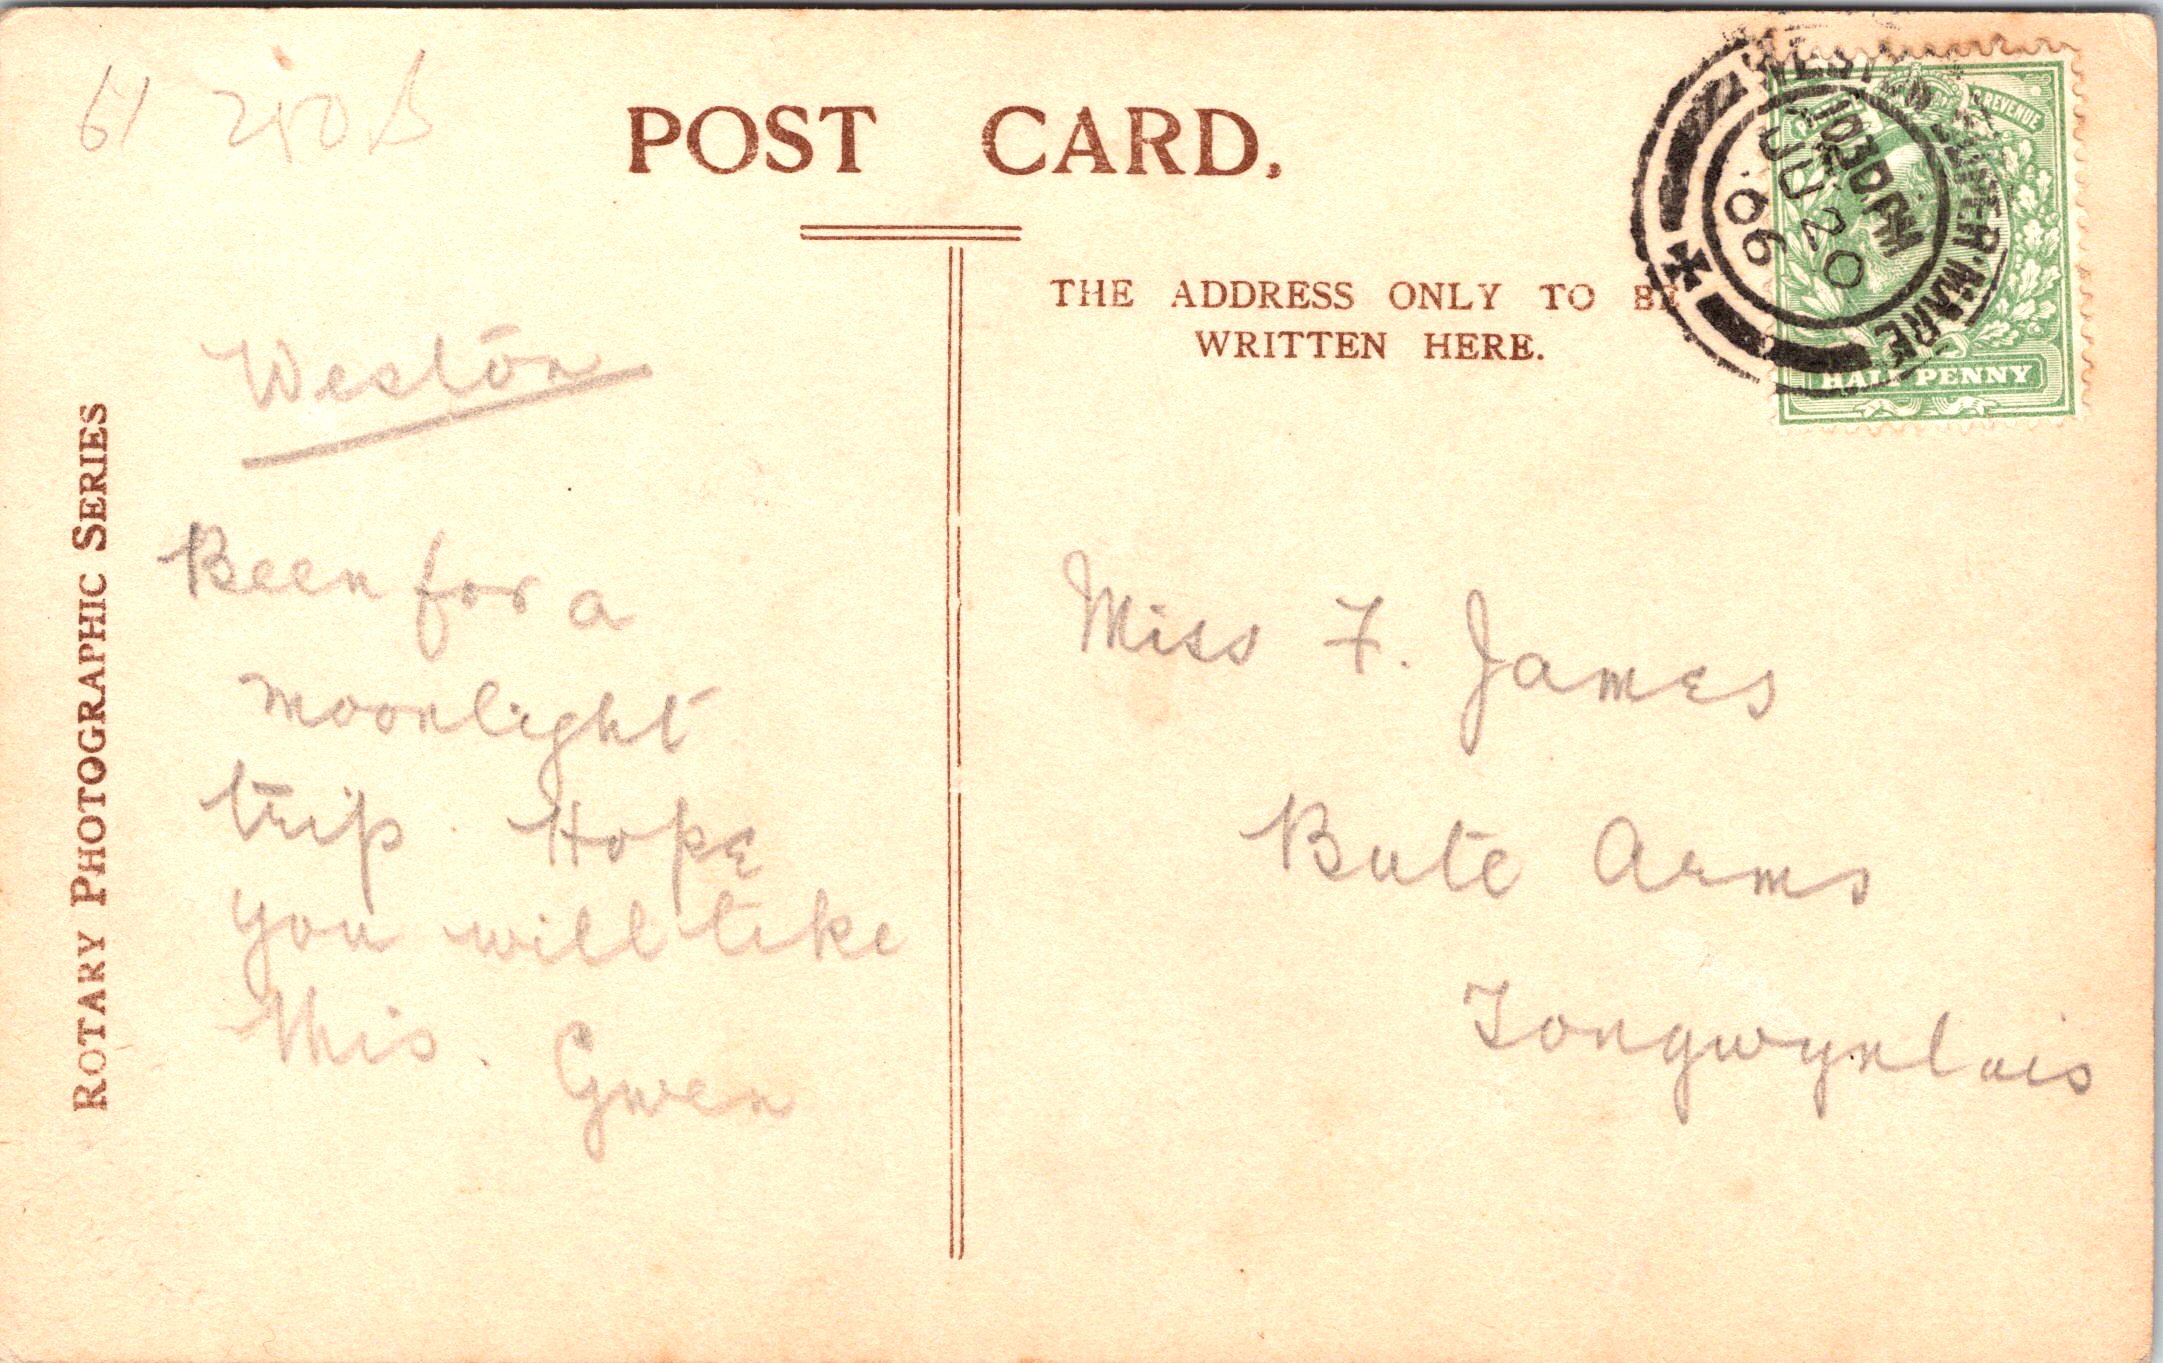 61 250
POST CARD.
THE ADDRESS ONLY TO BE
WRITTEN HERE.
ROTARY PHOTOGRAPHIC SERIES
POSTAGE & REVENUE
HALF PENNY
WESTON SUPER MARE
1030PM
JU 20
06
Weston
Been for a
moonlight
trip. Hope
you will like
this. Gwen
Miss F. James
Bute Arms
Tongwynlais